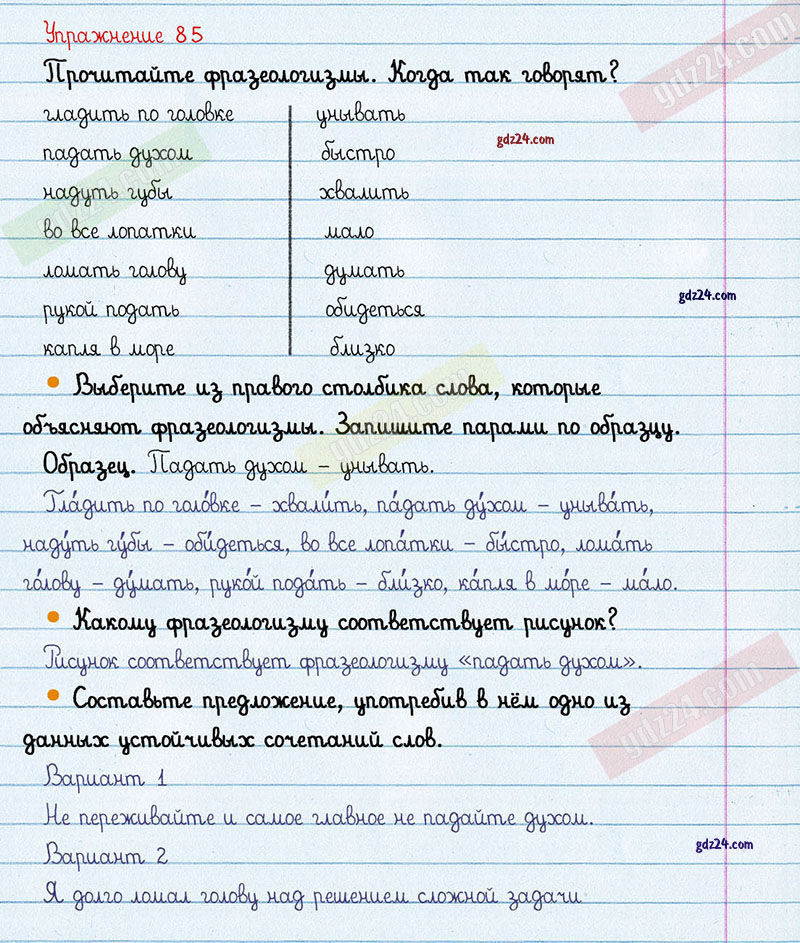 Упражнение 85
Прочитайте фразеологизмы. Когда так говорят?
гладить по головке унывать
gdz24.com
падать духом быстро
надуть губы хвалить
во все лопатки мало
ломать голову думать
gdz24.com
рукой подать обидеться
капля в море близко
• Выберите из правого столбика слова, которые
объясняют фразеологизмы. Запишите парами по образцу.
Образец. Падать духом – унывать.
Гла́дить по голо́вке – хвали́ть, па́дать ду́хом – уныва́ть,
наду́ть гу́бы – оби́деться, во все лопа́тки – бы́стро, лома́ть
го́лову – ду́мать, руко́й пода́ть – бли́зко, ка́пля в мо́ре – ма́ло.
• Какому фразеологизму соответствует рисунок?
Рисунок соответствует фразеологизму «падать духом».
• Составьте предложение, употребив в нём одно из
данных устойчивых сочетаний слов.
Вариант 1
Не переживайте и самое главное не падайте духом.
Вариант 2
gdz24.com
Я долго ломал голову над решением сложной задачи
gdz24.com
gdz24.com
gdz24.com
gdz24.com